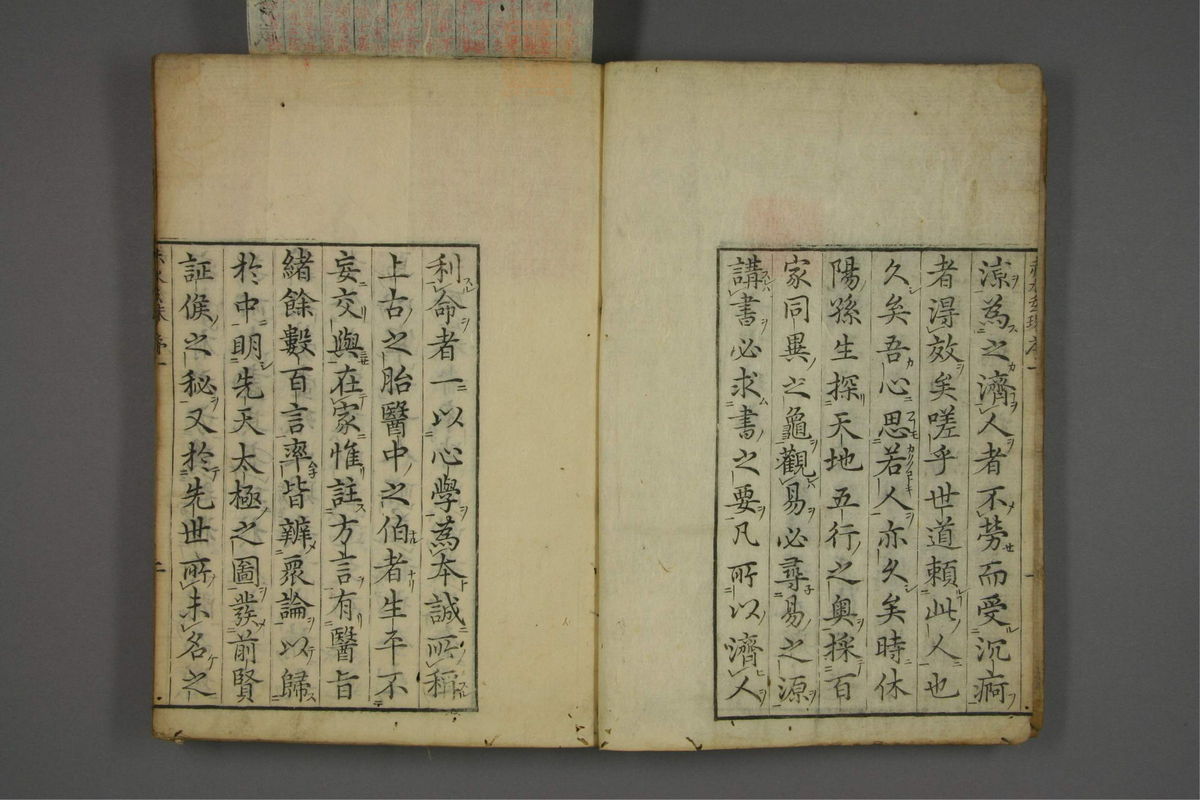 涼為之濟人者不勞而受沉痾
者得效矣嗟乎世道賴此人也
久矣吾心思若人亦久矣時休
陽孫生探天地五行之奧採百
家同異之龜觀易必尋易之源
講書必求書之要凡所以濟人
利命者一以心學為本誠所稱
上古之胎醫中之伯者生平不
妄交與在家惟註方言有醫旨
緒餘數百言率皆辨眾論以歸
於中明先天太極之圖發前賢
証候之秘又於先世所未名之